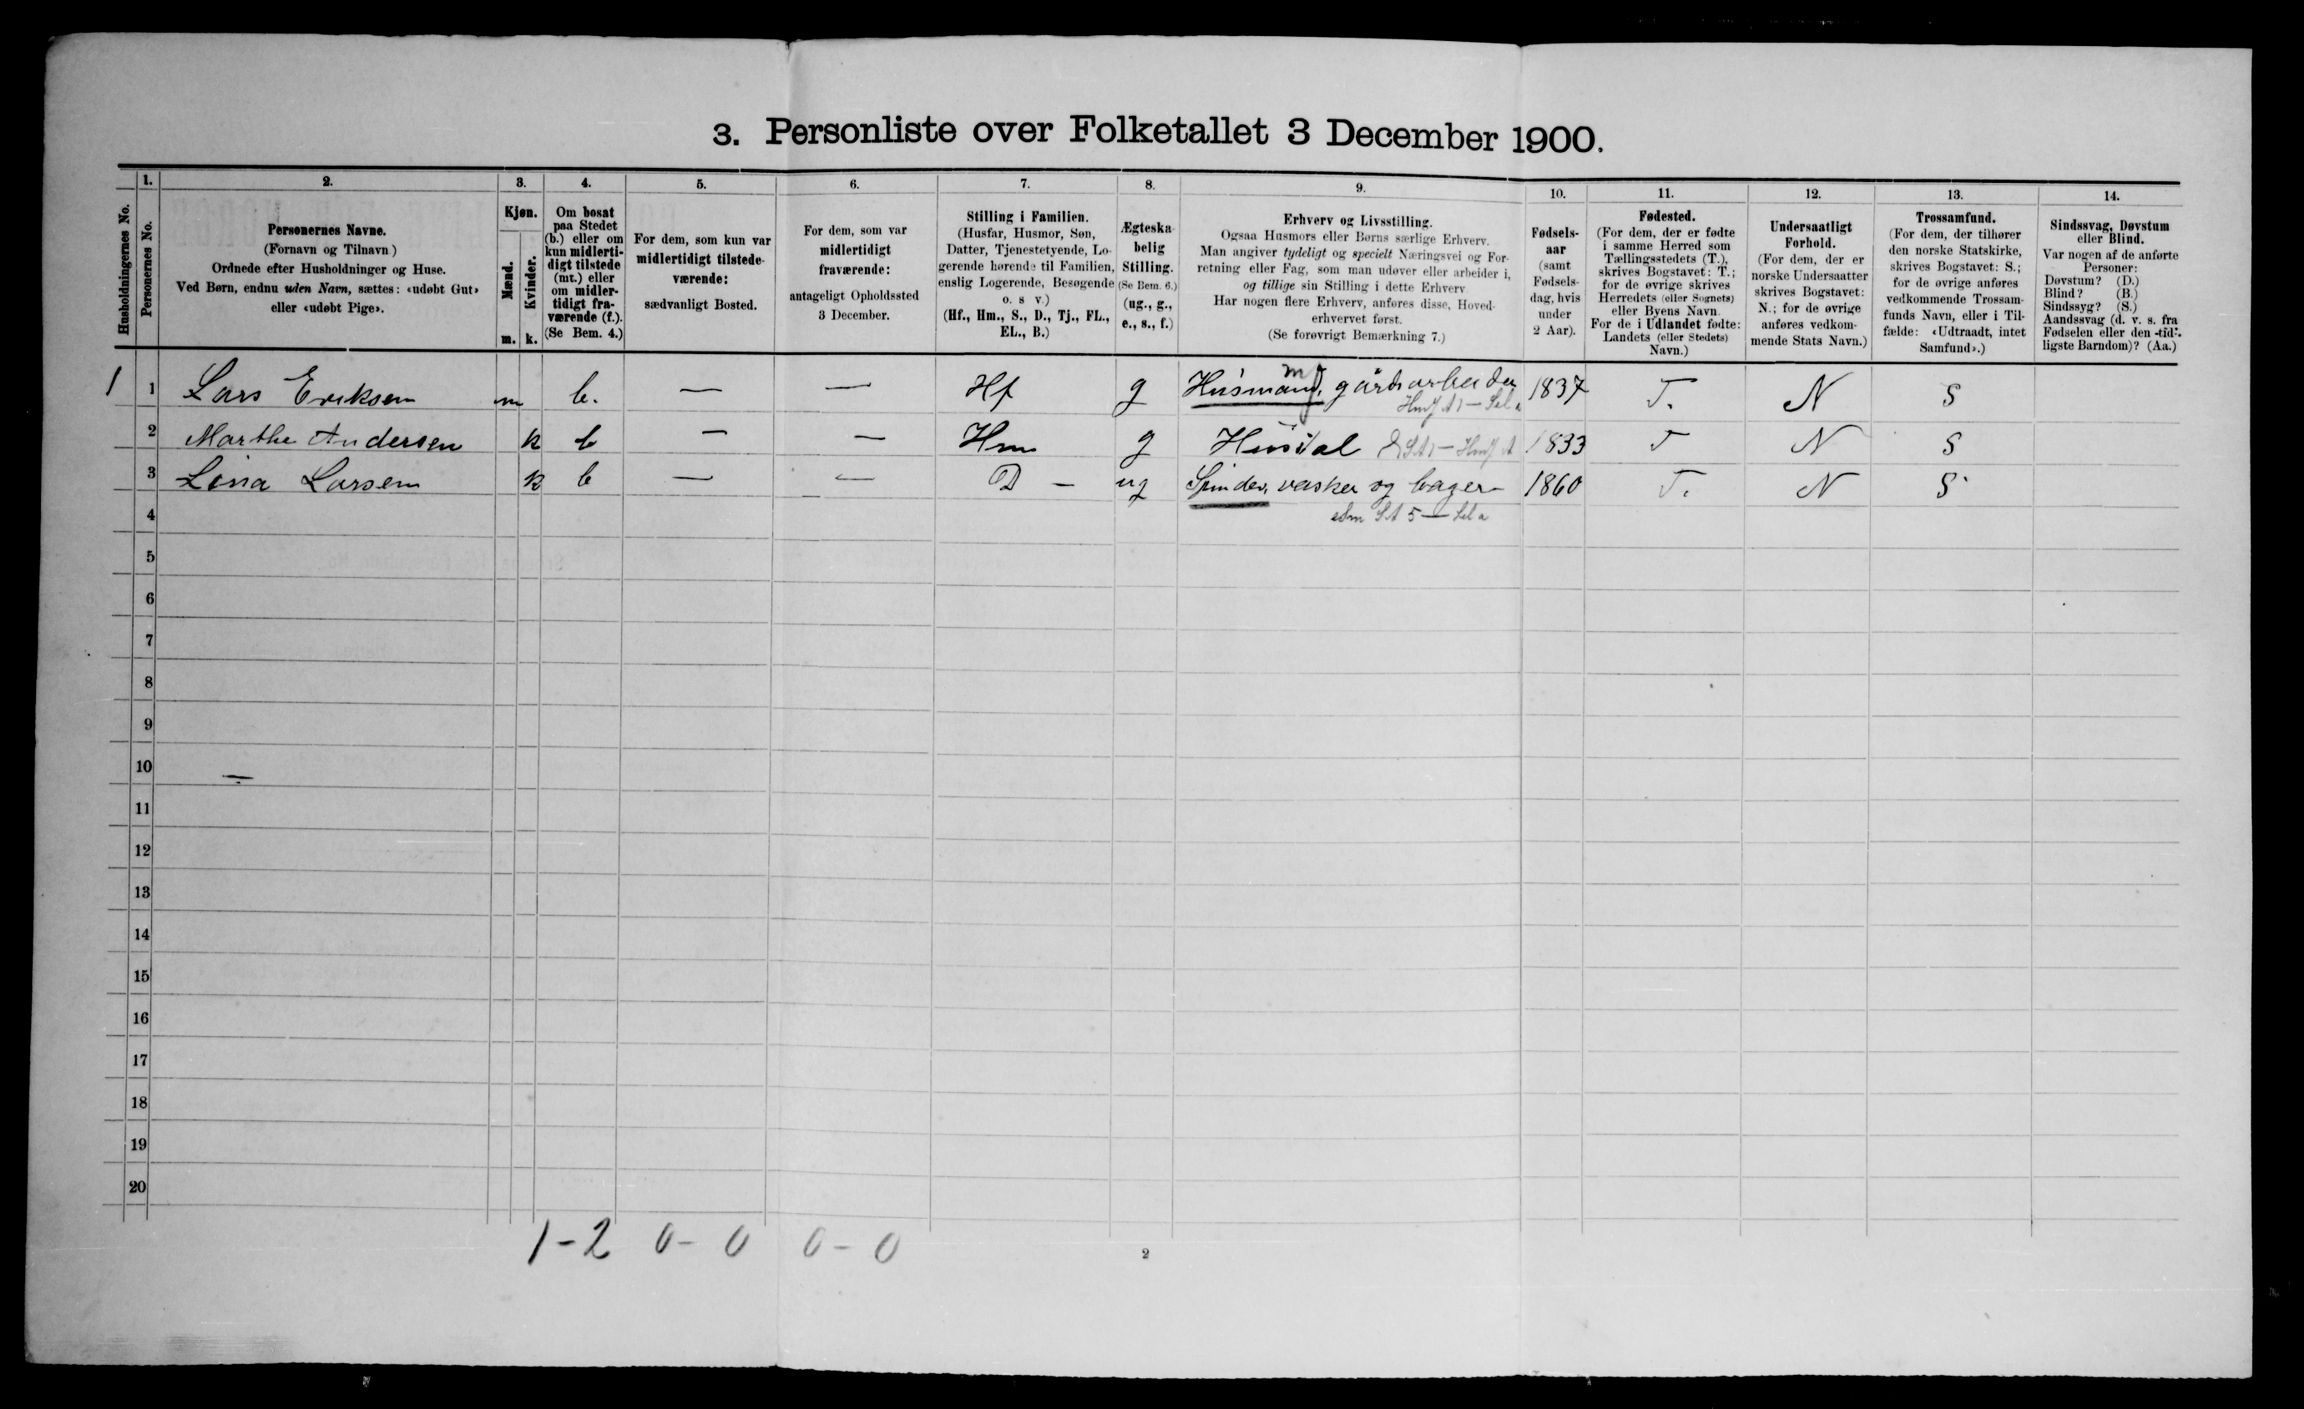 3. Personliste over Folketallet 3 December 1900.
Husholdningernes No.
1.
Personernes No.
2.
Personernes Navne.
(Fornavn og Tilnavn)
Ordnede efter Husholdninger og Huse.
Ved Børn, endnu uden Navn, sættes: «udøbt Gut»
eller «udøbt Pige».
3.
Kjøn.
Mænd.
Kvinder.
m. k.
4.
Om bosat
paa Stedet
(b.) eller om
kun midlerti-
digt tilstede
(mt.) eller
om midler-
tidigt fra-
værende (f.).
(Se Bem. 4.)
5.
For dem, som kun var
midlertidigt tilstede-
værende:
sædvanligt Bosted.
6.
For dem, som var
midlertidigt
fraværende:
antageligt Opholdssted
3 December.
7.
Stilling i Familien.
(Husfar, Husmor, Søn,
Datter, Tjenestetyende, Lo-
gerende hørende til Familien,
enslig Logerende, Besøgende
o. s v.)
(Hf., Hm., S., D., Tj., FL.,
EL., B.)
8.
Ægteska-
belig
Stilling.
(Se Bem. 6.)
(ug., g.,
e., s., f.)
9.
Erhverv og Livsstilling.
Ogsaa Husmors eller Børns særlige Erhverv.
Man angiver tydeligt og specielt Næringsvei og For-
retning eller Fag, som man udøver eller arbeider i,
og tillige sin Stilling i dette Erhverv.
Har nogen flere Erhverv, anføres disse, Hoved-
erhvervet først.
(Se forøvrigt Bemærkning 7.)
10.
Fødsels-
aar
(samt
Fødsels-
dag, hvis
under
2 Aar).
11.
Fødested.
(For dem, der er fødte
i samme Herred som
Tællingsstedets (T.),
skrives Bogstavet: T.;
for de øvrige skrives
Herredets (eller Sognets)
eller Byens Navn.
For de i Udlandet fødte:
Landets (eller Stedets)
Navn.)
12.
Undersaatligt
Forhold.
(For dem, der er
norske Undersaatter
skrives Bogstavet:
N.; for de øvrige
anføres vedkom-
mende Stats Navn.)
13.
Trossamfund.
(For dem, der tilhører
den norske Statskirke,
skrives Bogstavet: S.;
for de øvrige anføres
vedkommende Trossam-
funds Navn, eller i Til-
fælde: «Udtraadt, intet
Samfund».)
14.
Sindssvag, Døvstum
eller Blind.
Var nogen af de anførte
Personer:
Døvstum? (D.)
Blind? (B.)
Sindssyg? (S.)
Aandssvag (d. v. s. fra
Fødselen eller den tid-
ligste Barndom)? (Aa.)
1 1 Lars Eriksen m b. — — Hf g Husmand, gårdsarbeider 1837 T. N S
2 Marthe Andersen k b — — Hm g Husstal 1833 T N S
3 Lina Larsen k b — — D — ug Spinder, vasker og bager 1860 T. N S
4
5
6
7
8
9
10
11
12
13
14
15
16
17
18
19
20
1 - 2 0 - 0 0 - 0
2